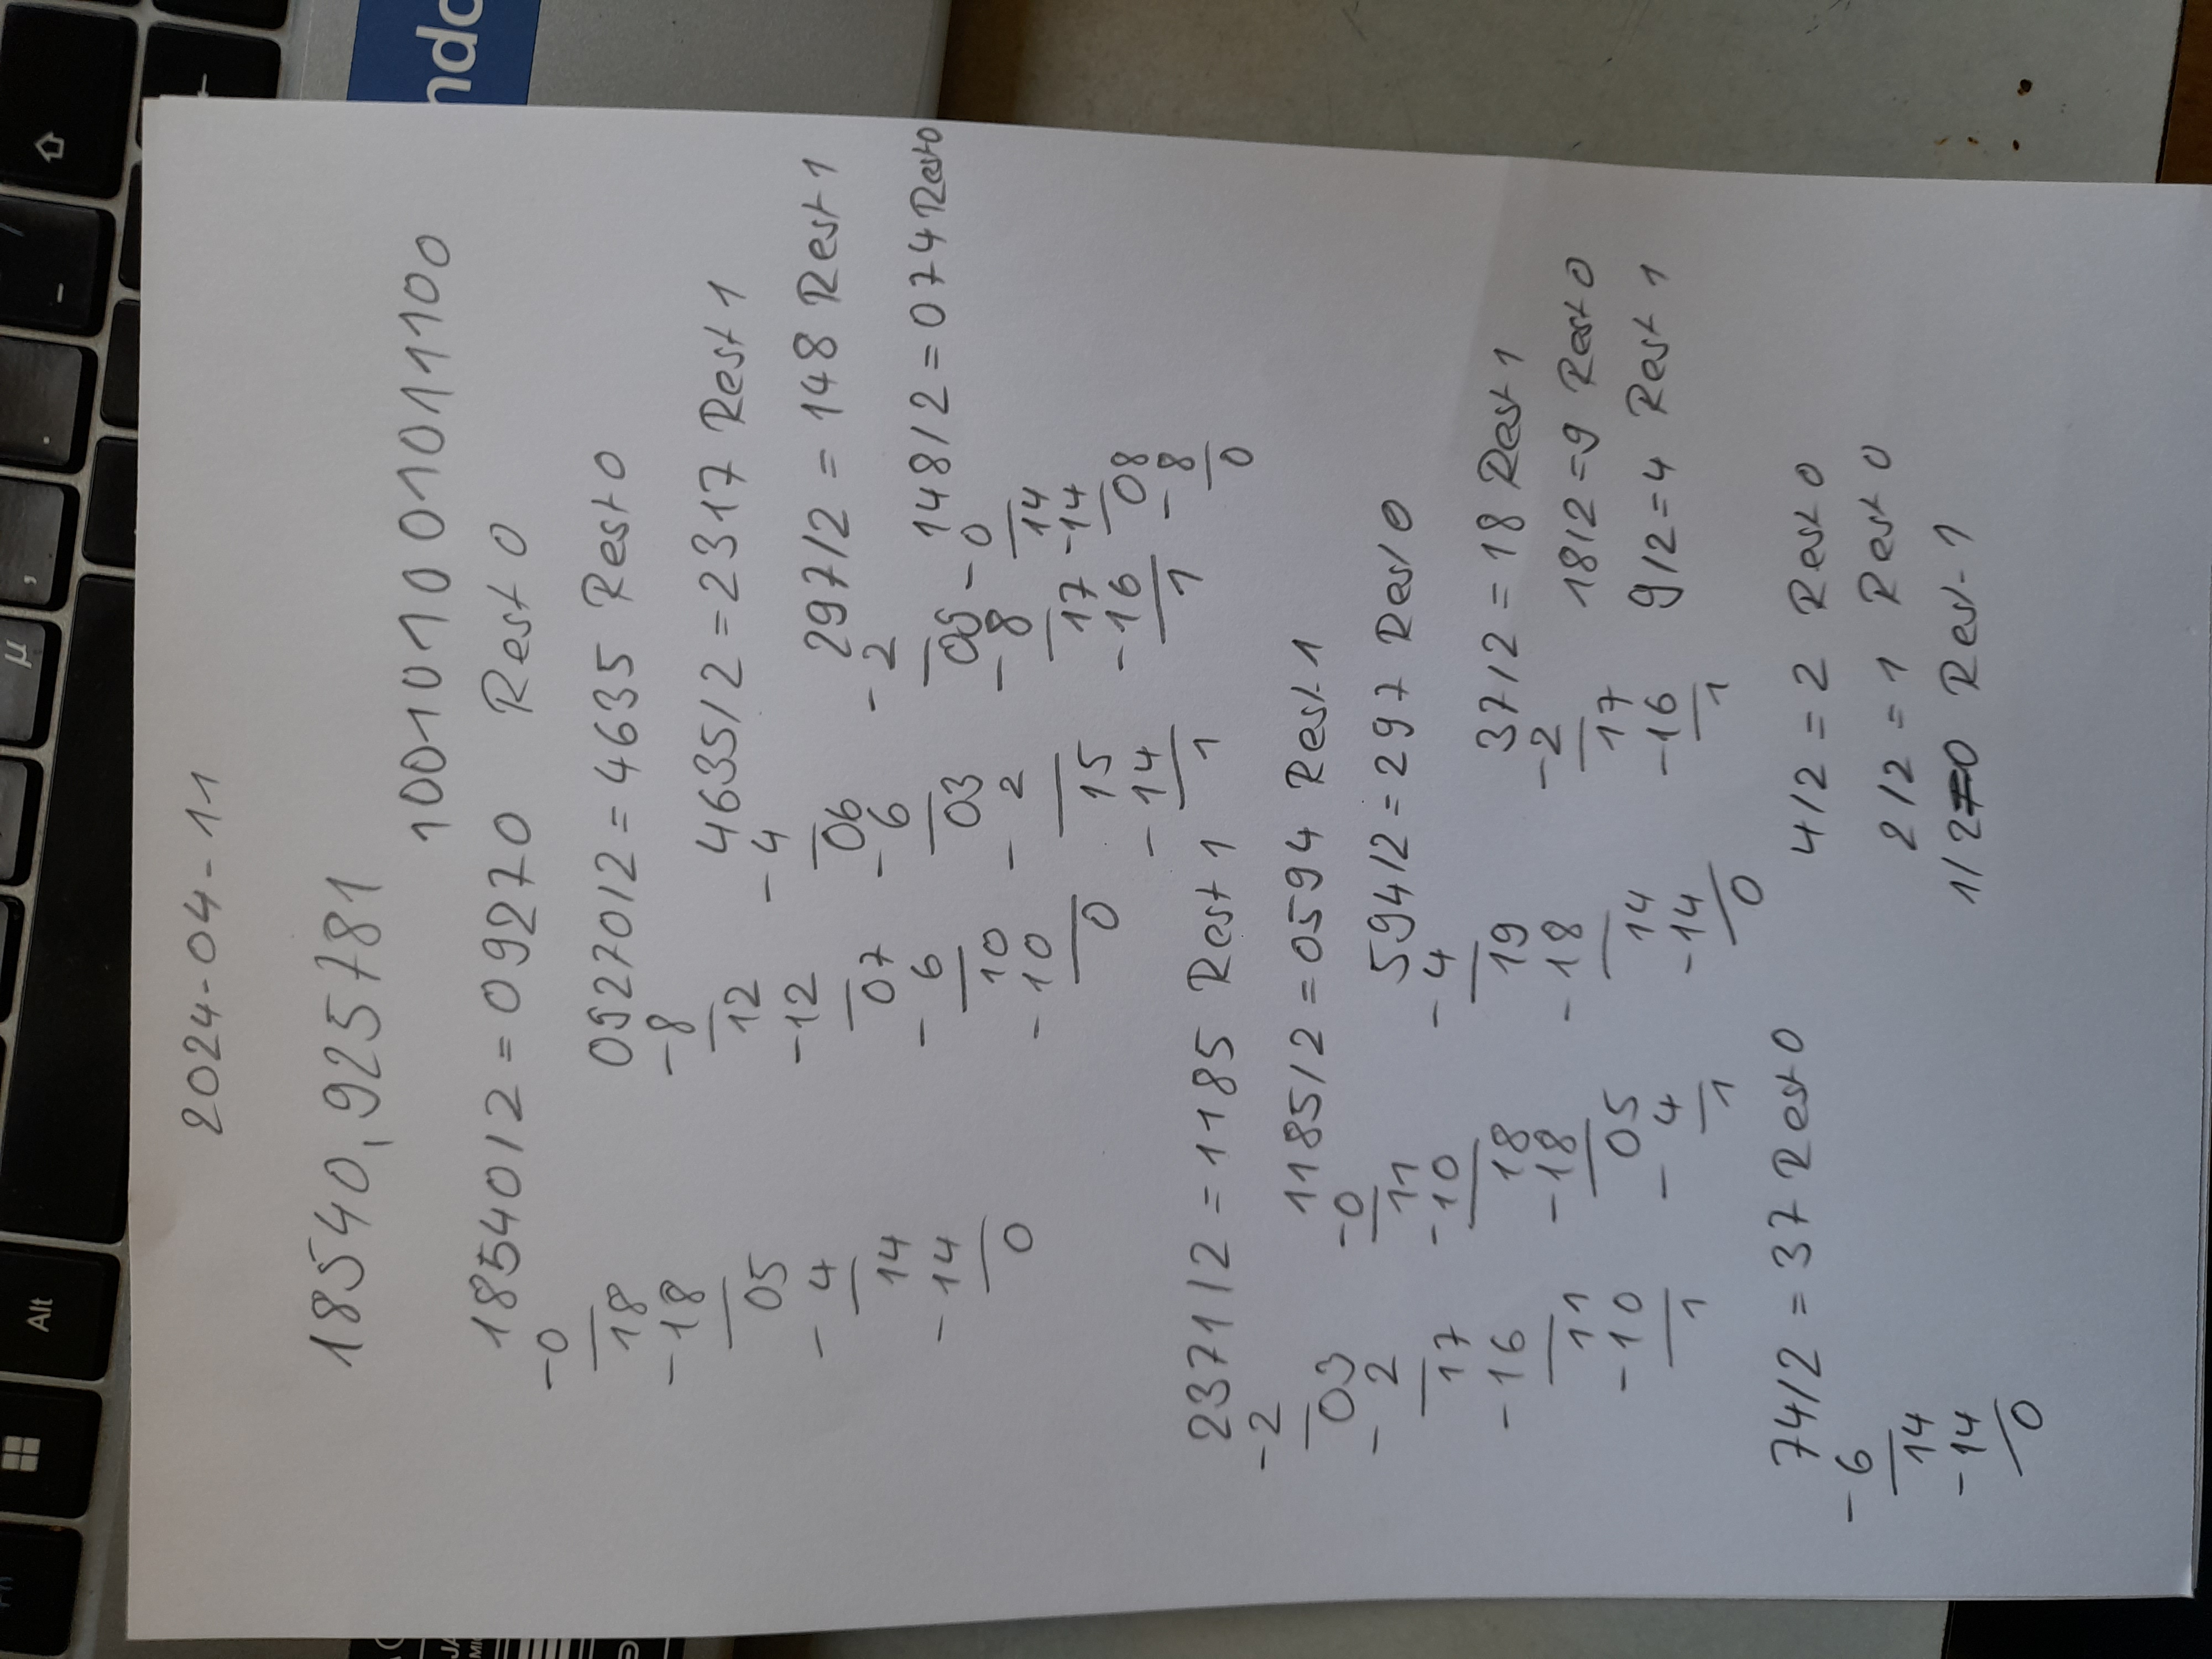 2024-04-11
18540,925781
100101001011100
18540/2=09270 Rest 0
-0
18
-18
05
-4
14
-14
0
09270/2=4635 Rest 0
-8
12
-12
07
-6
10
-10
0
4635/2=2317 Rest 1
-4
06
-6
03
-2
15
-14
1
297/2=148 Rest 1
-2
09
-8
17
-16
1
148/2=074 Rest 0
-0
14
-14
08
-8
0
2371/2=1185 Rest 1
-2
03
-2
17
-16
11
-10
1
1185/2=0594 Rest 1
-0
11
-10
18
-18
05
-4
1
594/2=297 Rest 0
-4
19
-18
14
-14
0
37/2=18 Rest 1
-2
17
-16
1
18/2=9 Rest 0
9/2=4 Rest 1
74/2=37 Rest 0
-6
14
-14
0
4/2=2 Rest 0
2/2=1 Rest 0
1/2=0 Rest 1
Alt
µ